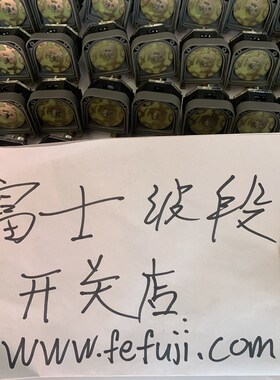 富士 波段
开关店
www.fefuji.com